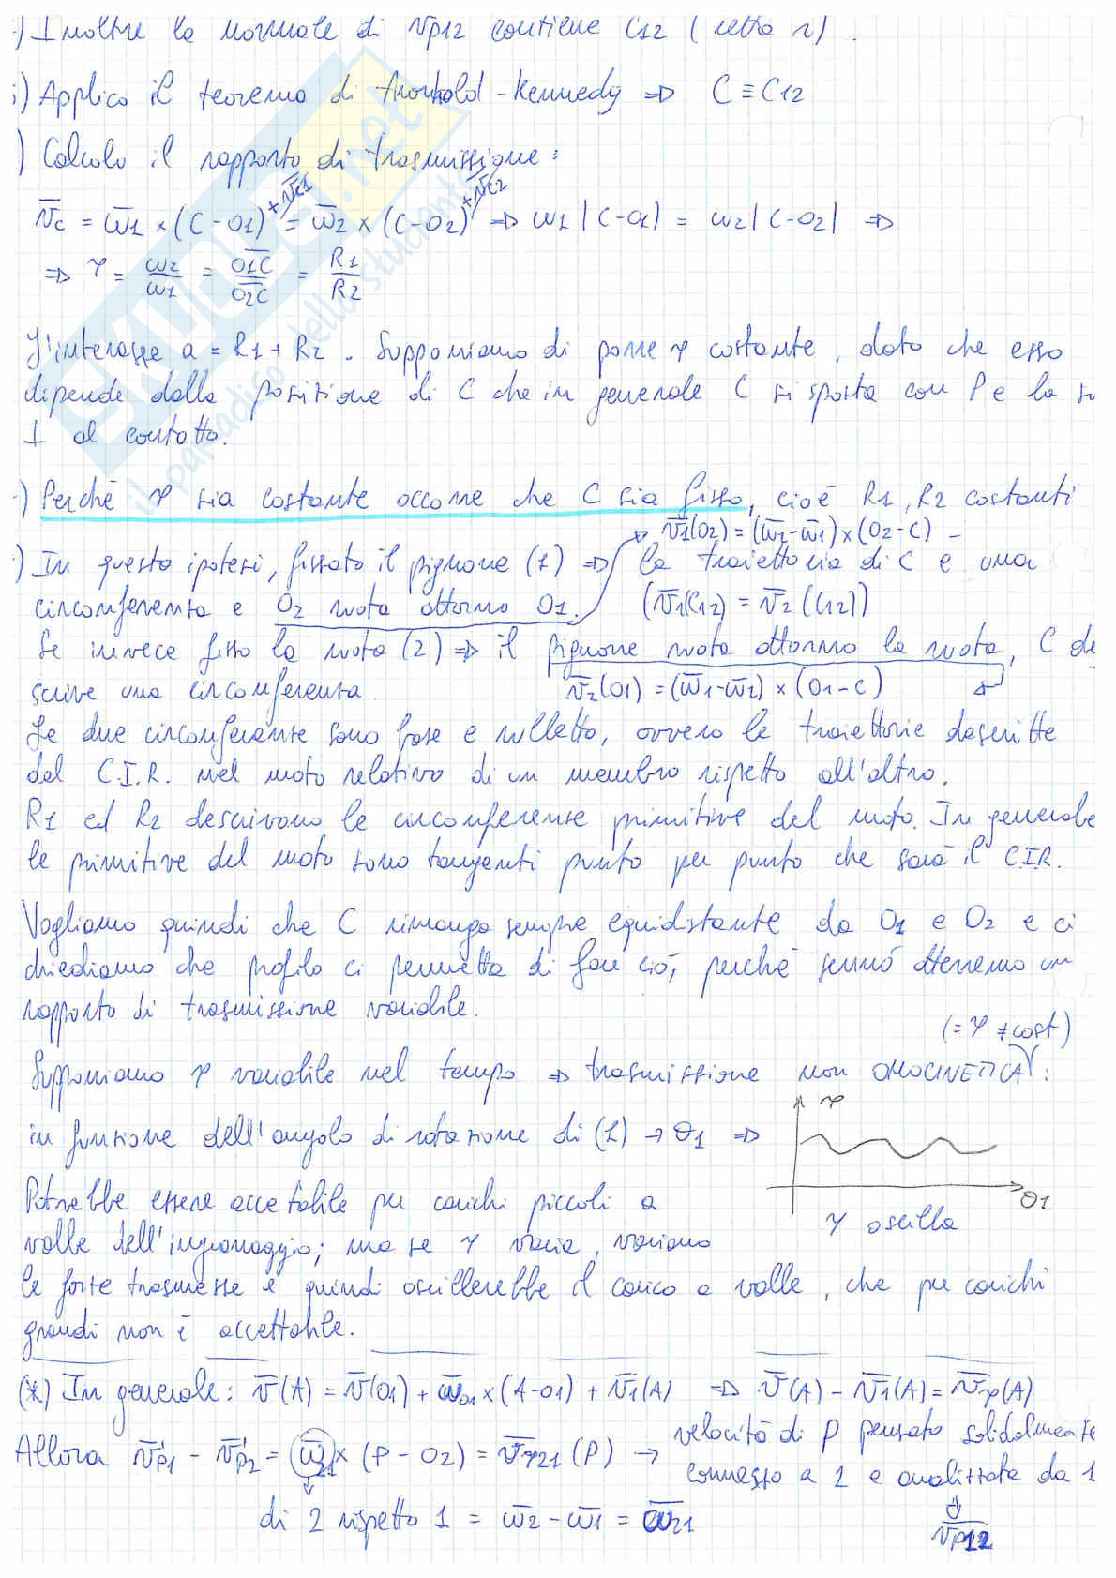 ·) Inoltre la normale di Vp12 contiene C12 (retta n).
i) Applico il teorema di Aronhold-Kennedy => C ≡ C12
) Calcolo il rapporto di trasmissione:
v̄c = ω̄1 × (C-O1) + v̄c1 = ω̄2 × (C-O2) + v̄c2 => ω1 |C-O1| = ω2 |C-O2| =>
=> τ = ω2/ω1 = O1C/O2C = R1/R2
L'interasse a = R1 + R2. Supponiamo di porre τ costante, dato che esso
dipende dalla posizione di C che in generale C si sposta con P e la su
⊥ al contatto.
·) Perché τ sia costante occorre che C sia fisso, cioè R1, R2 costanti
v̄1(O2) = (ω̄2-ω̄1) × (O2-C) -
·) In questa ipotesi, fissato il pignone (1) => la traiettoria di C è una
circonferenza e O2 ruota attorno O1. (v̄1(C12) = v̄2(C12))
Se invece fisso la ruota (2) => il pignone ruota attorno la ruota, C de
scrive una circonferenza. v̄2(O1) = (ω̄1-ω̄2) × (O1-C)
Le due circonferenze sono base e rulletta, ovvero le traiettorie descritte
dal C.I.R. nel moto relativo di un membro rispetto all'altro.
R1 ed R2 descrivono le circonferenze primitive del moto. In generale
le primitive del moto sono tangenti punto per punto che sarà il C.I.R.
Vogliamo quindi che C rimanga sempre equidistante da O1 e O2 e ci
chiediamo che profilo ci permetta di fare ciò, perché sennò otterremo un
rapporto di trasmissione variabile.
(= τ ≠ cost)
Supponiamo τ variabile nel tempo => trasmissione non OMOCINETICA:
in funzione dell'angolo di rotazione di (1) → θ1 =>
τ
θ1
τ oscilla
Potrebbe essere accettabile per carichi piccoli a
valle dell'ingranaggio; ma se τ varia, variano
le forze trasmesse e quindi oscillerebbe il carico a valle, che per carichi
grandi non è accettabile.
(*) In generale: v̄(A) = v̄(O1) + ω̄01 × (A-O1) + v̄1(A) => v̄(A) - v̄1(A) = v̄τp(A)
Allora v̄p1 - v̄p2 = ω̄21 × (P-O2) = v̄τ21(P) → velocità di P pensato solidalmente
connesso a 2 e analizzata da 1
di 2 rispetto 1 = ω̄2 - ω̄1 = ω̄21
v̄p12